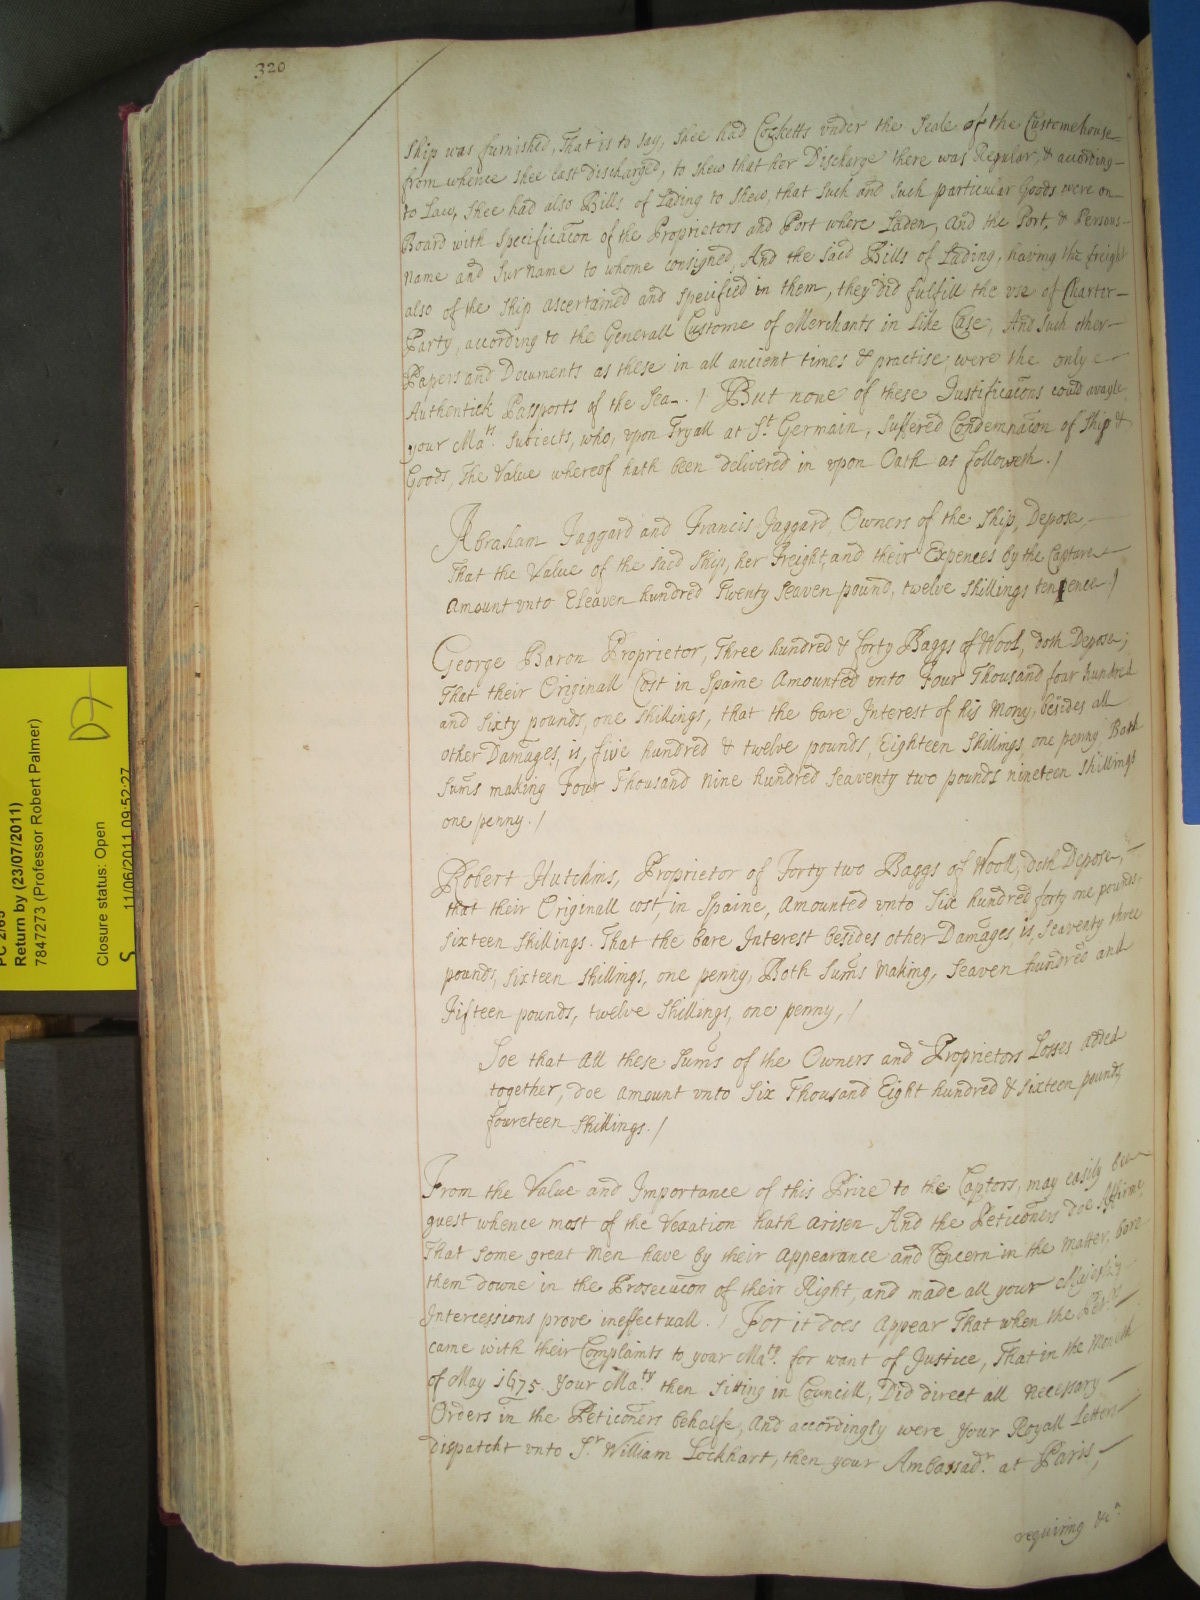 320
Ship was furnished, That is to say, Shee had Cocketts vnder the Seale of the Customehouse
from whence Shee last Discharged, to shew that her Discharge there was Regular, & according
to Law, Shee had also Bills of Lading to shew, that such and such particular Goods were on
Board with specificac̃on of the Proprietors and Port where Laden, and the Port, & Persons
name and Surname to whome consigned, And the said Bills of Lading, having the freight
also of the Ship ascertained and specified in them, they did fulfill the vse of Charter-
Party, according to the Generall Custome of Merchants in like Case, And such other
Papers and Documents as these in all ancient times & practise, were the only
Authentick Passports of the Sea. / But none of these Justificac̃ons could avayle
your Ma.ts Subiects, who, vpon Tryall at S.t Germain, suffered Condemnac̃on of Ship &
Goods, The Value whereof hath been delivered in vpon Oath as followeth. /
Abraham Jaggard and Francis Jaggard, Owners of the Ship, Depose,
That the Value of the said Ship, her Freight, and their Expences by the Capture
amount vnto Eleaven hundred Twenty Seaven pound, twelve shillings tenpence /
George Baron Proprietor, Three hundred & forty Baggs of Wool, doth Depose;
That their Originall Cost in Spaine Amounted vnto Four Thousand four hundred
and Sixty pounds, one shillings, that the bare Interest of his Mony, besides all
other Damages, is, five hundred & twelve pounds, Eighteen Shillings, one penny Both
Sum̃s making Four Thousand Nine hundred Seaventy two pounds nineteen shillings
one penny. /
Robert Hutchins, Proprietor of Forty two Baggs of Wooll, doth Depose,
that their Originall cost, in Spaine, amounted vnto Six hundred forty one pounds,
Sixteen Shillings. That the bare Interest besides other Damages, is, Seaventy three
pounds, Sixteen shillings, one penny, Both Sum̃s Making, Seaven hundred and
Fifteen pounds, twelve shillings, one penny, /
Soe that all these Sum̃s of the Owners and Proprietors Losses added
together, doe amount vnto Six Thousand Eight hundred & Sixteen pounds
foureteen Shillings. /
From the Value and Importance of this Prize to the Captors, may easily bee
guest whence most of the Vexation hath arisen And the Petic̃oners doe Affirme,
That some great Men have by their Appearance and Concern in the Matter, bore
them downe in the Prosecuc̃on of their Right, and made all your Majesties
Intercessions prove ineffectuall. / For it does Appear That when the Pet.rs
came with their Complaints to your Ma.ty for want of Justice, That in the Moneth
of May 1675. Your Ma.ty then Sitting in Councill, Did direct all necessary
Orders in the Petic̃oners behalfe, And accordingly were Your Royall Letters
dispatcht vnto S.r William Lockhart, then your Ambassad.r at Paris,
requiring &c.a
PC 2/65
Return by (23/07/2011)
7847273 (Professor Robert Palmer)
Closure status: Open
S 11/06/2011 09:52:27
D7